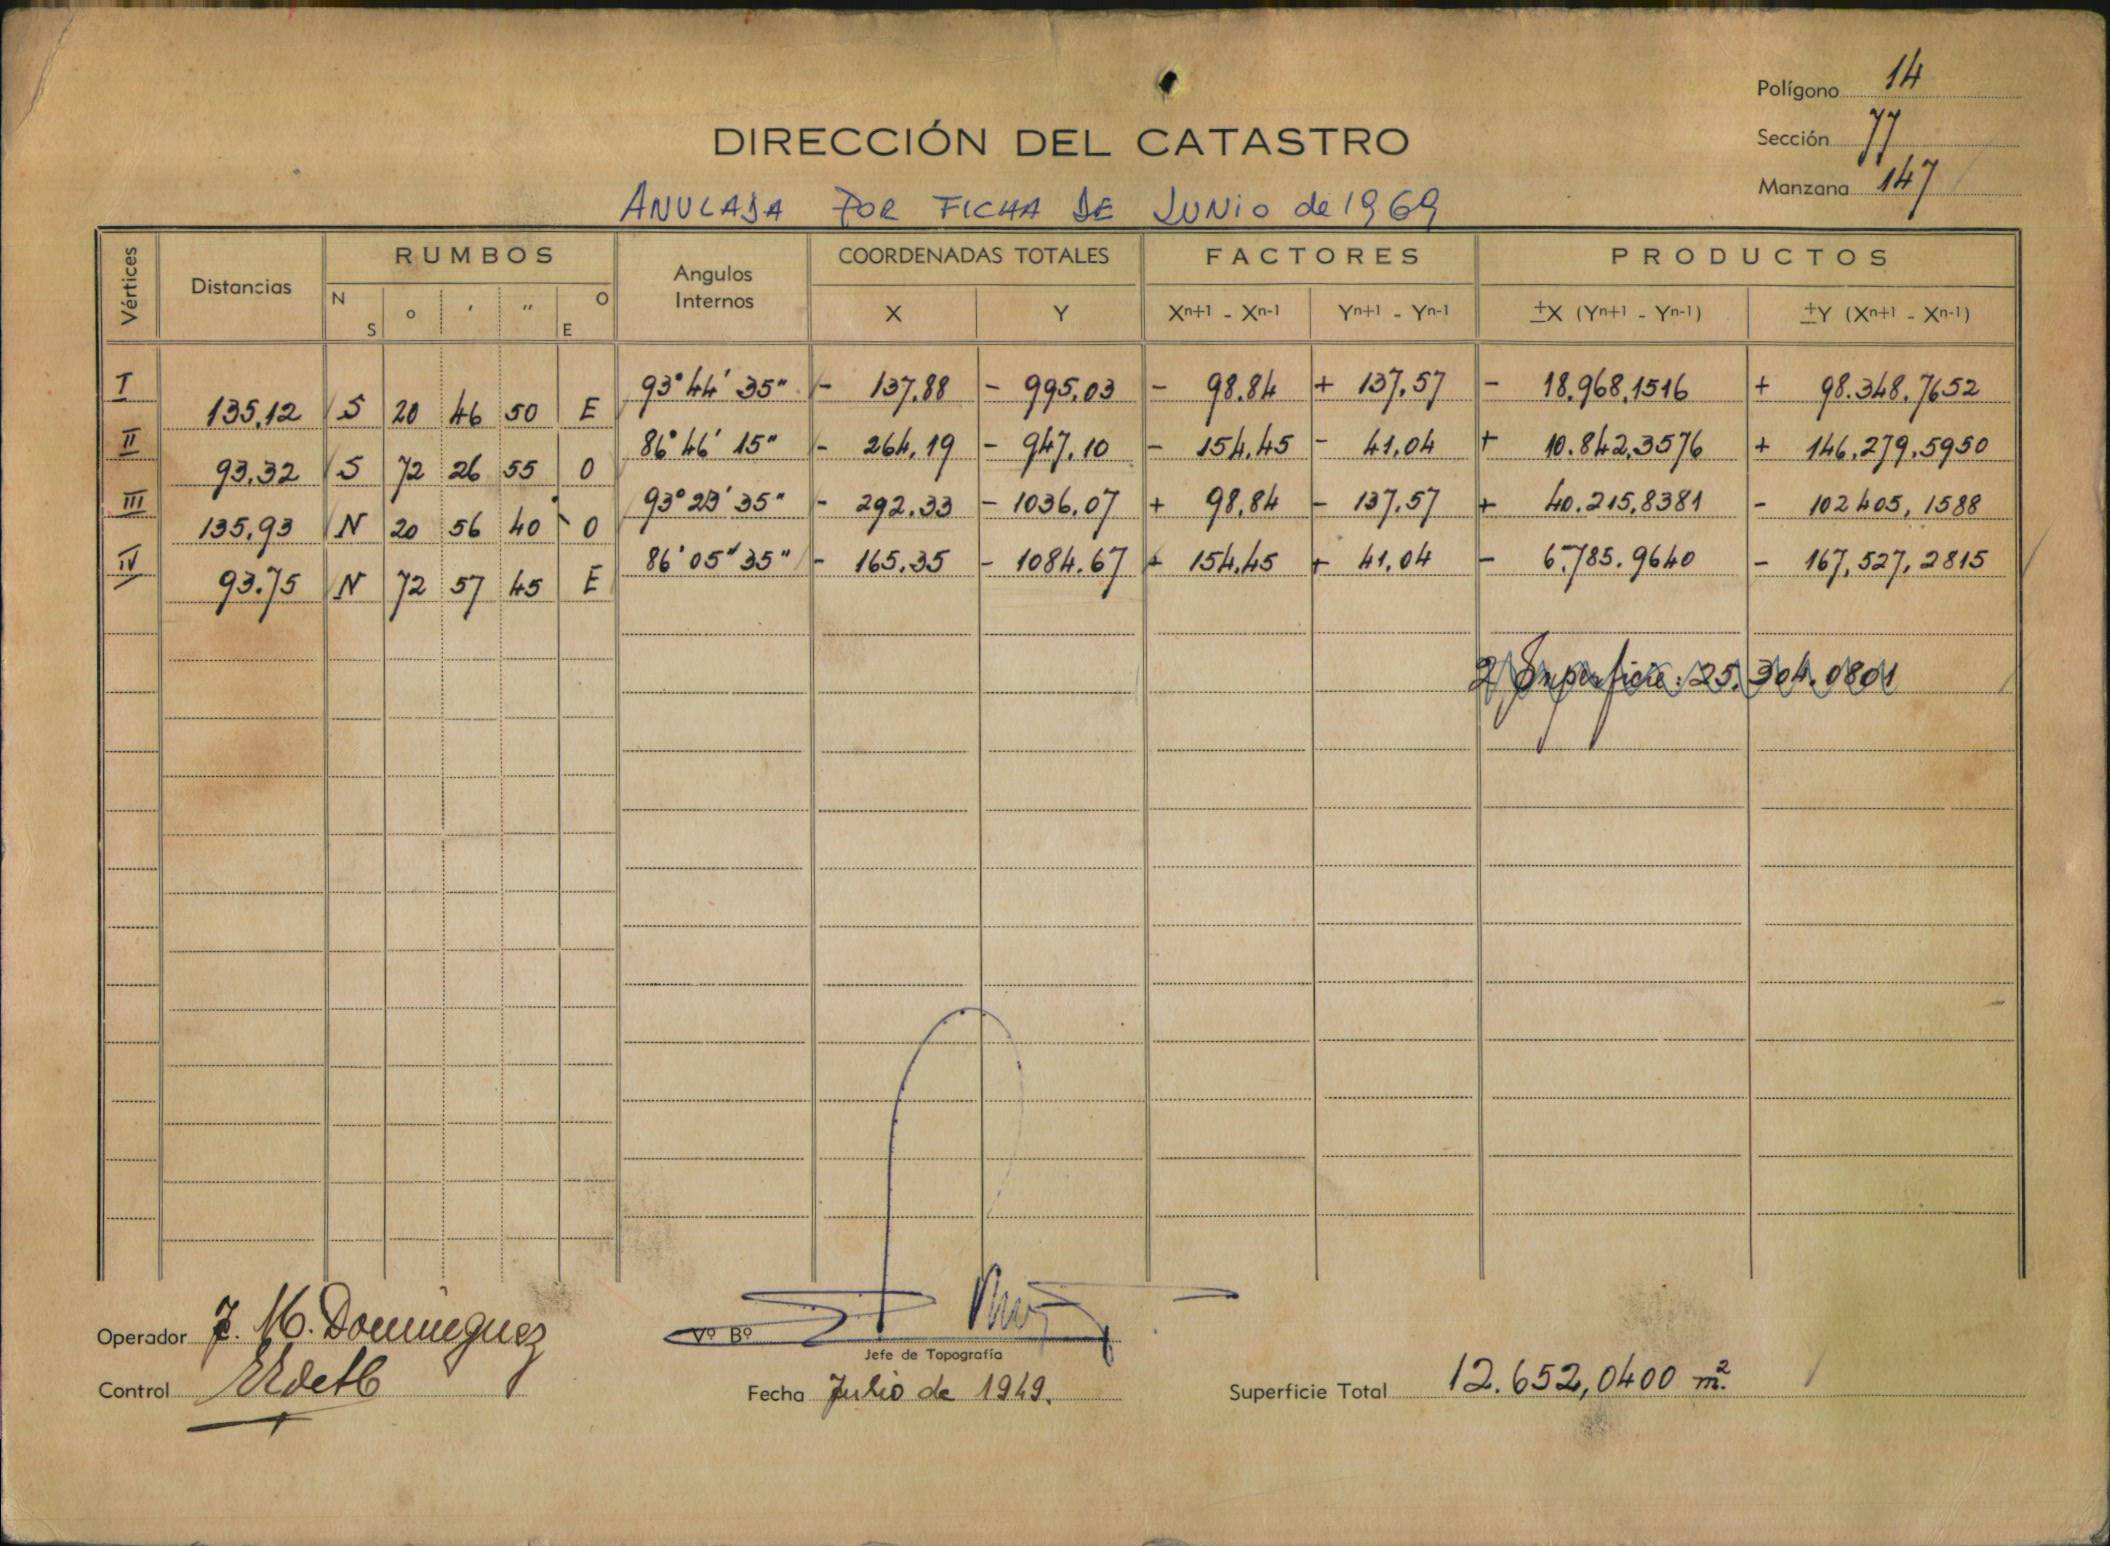 Polígono 14
DIRECCIÓN DEL CATASTRO
Sección 77
Manzana 147
ANULADA POR FICHA DE JUNIO de 1969
Vértices Distancias RUMBOS Angulos Internos COORDENADAS TOTALES FACTORES PRODUCTOS
N S ° ' " O E X Y Xn+1 - Xn-1 Yn+1 - Yn-1 ±X (Yn+1 - Yn-1) ±Y (Xn+1 - Xn-1)
I 93°44'35" - 137,88 - 995,03 - 98,84 + 137,57 - 18.968,1516 + 98.348,7652
135,12 S 20 46 50 E
II 86°46'15" - 264,19 - 947,10 - 154,45 - 41,04 + 10.842,3576 + 146.279,5950
93,32 S 72 26 55 O
III 93°23'35" - 292.33 - 1036,07 + 98,84 - 137,57 + 40.215,8381 - 102405,1588
135,93 N 20 56 40 O
IV 86'05"35" - 165.35 - 1084.67 + 154,45 + 41,04 - 6.785.9640 - 167,527,2815
93.75 N 72 57 45 E
2 Superficie: 25.304.0801
Operador J. M. Dominguez
Vº Bº
Jefe de Topografía
Control
Fecha Julio de 1949.
Superficie Total 12.652,0400 m²